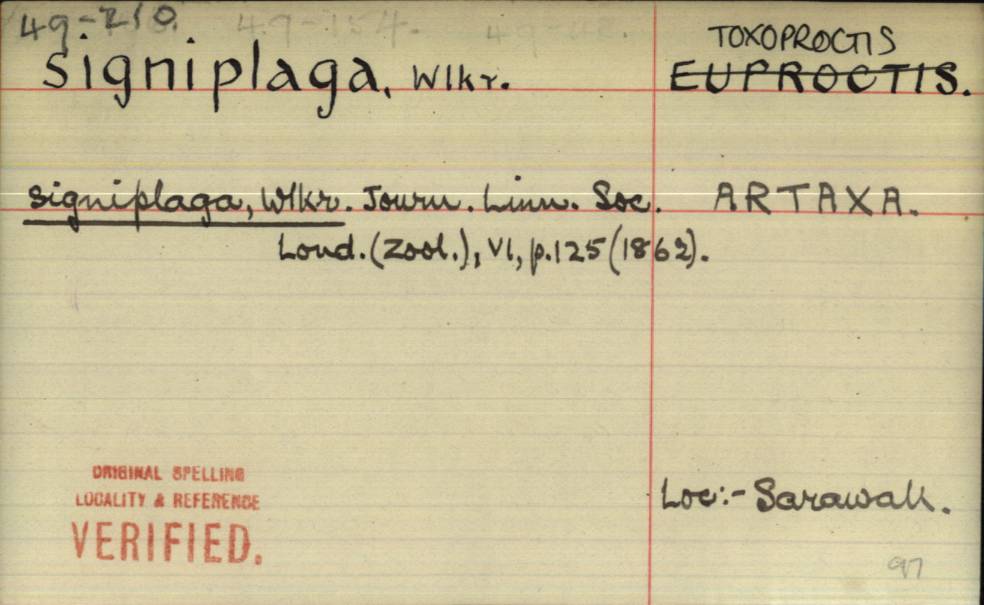 49-210. 49-154. 49-
TOXOPROCTIS
signiplaga, Wlkr. EUPROCTIS.
signiplaga, Wlkr. Journ. Linn. Soc. ARTAXA.
Lond. (Zool.), VI, p.125 (1862).
ORIGINAL SPELLING
LOCALITY & REFERENCE
VERIFIED.
Loc:- Sarawak.
97